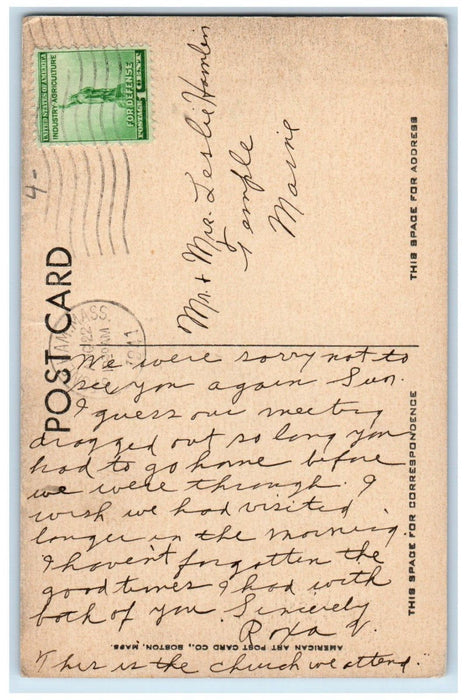 UNITED STATES OF AMERICA
INDUSTRY AGRICULTURE
FOR DEFENSE
POSTAGE 1 CENT
4-
MASS.
22
AM
1941
POST CARD
Mr. + Mrs. Leslie Hamlin
Temple
Maine
THIS SPACE FOR ADDRESS
We were sorry not to
see you again Sun.
I guess our meeting
dragged out so long you
had to go home before
we were through. I
wish we had visited
longer in the morning.
I haven't forgotten the
good times I had with
both of you. Sincerely
Roxa V.
This is the church we attend.
THIS SPACE FOR CORRESPONDENCE
AMERICAN ART POST CARD CO., BOSTON, MASS.